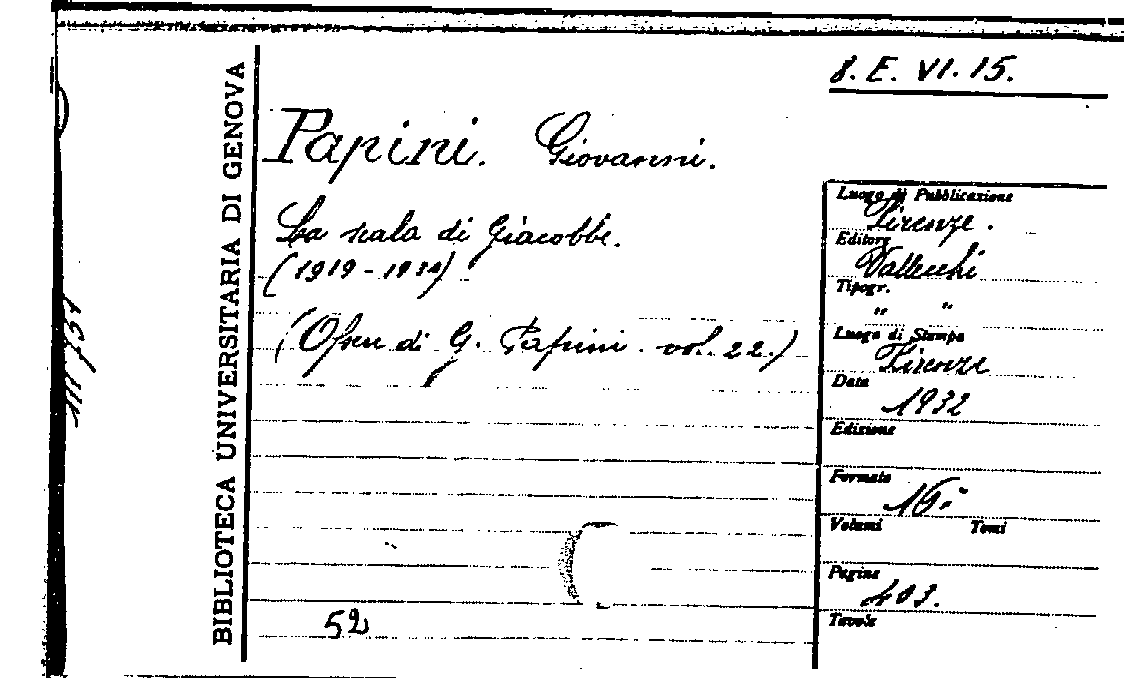 BIBLIOTECA UNIVERSITARIA DI GENOVA
8. E. VI. 15.
Papini. Giovanni.
La scala di Giacobbe.
(1919-1930)
(Opere di G. Papini. vol. 22.)
52
Luogo di Pubblicazione
Firenze.
Editore
Vallecchi
Tipogr.
" "
Luogo di Stampa
Firenze
Data
1932
Edizione
Formato
16°
Volumi Tomi
Pagine
403.
Tavole